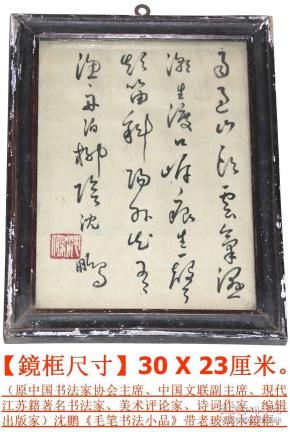 雨過山頭雲氣濕
潮生渡口岸痕一聲
短笛斜陽外知有
漁舟泊柳陰 沈
鵬寫
【鏡框尺寸】30 X 23厘米。
（原中国书法家协会主席、中国文联副主席、現代
江苏籍著名书法家、美术评论家、诗词作家、编辑
出版家）沈鹏《毛笔书法小品》带老玻璃木镜框